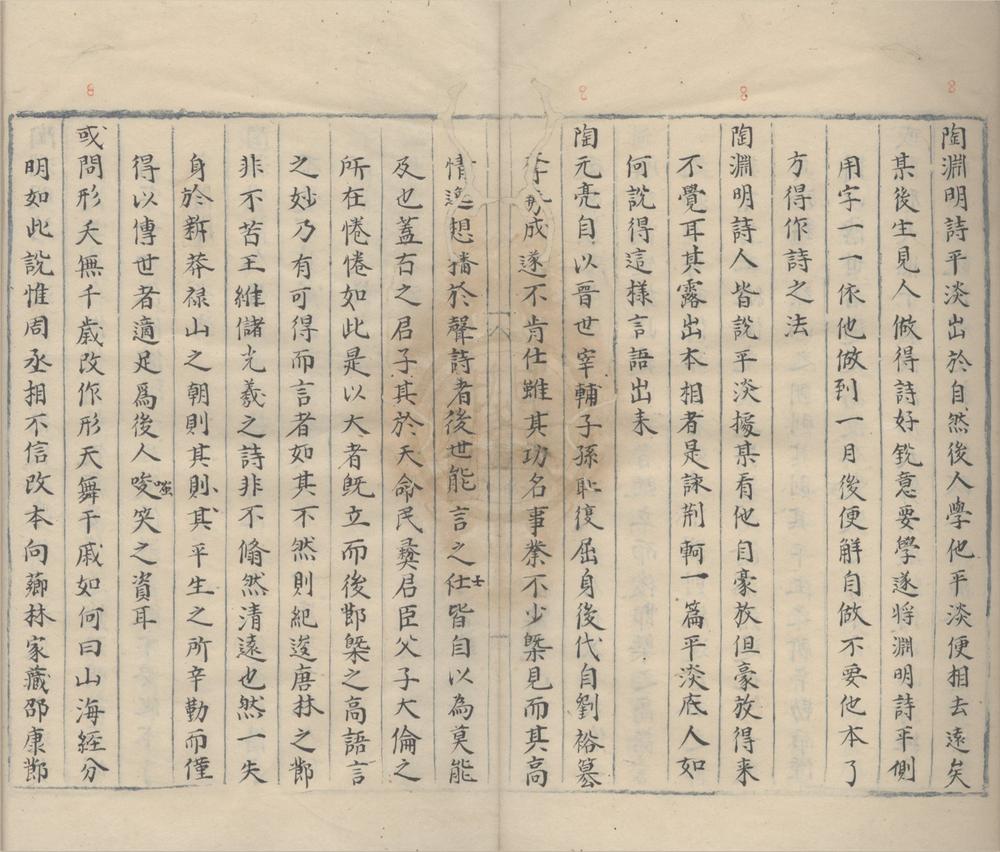 陶淵明詩平淡出於自然後人學他平淡便相去遠矣
某後生見人做得詩好銳意要學遂將淵明詩平側
用字一一依他做到一月後便解自做不要他本了
方得作詩之法
陶淵明詩人皆說平淡據某看他自豪放但豪放得来
不覺耳其露出本相者是詠荆軻一篇平淡底人如
何說得這樣言語出来
陶元亮自以晉世宰輔子孫恥復屈身後代自劉裕篡
奪勢成遂不肯仕雖其功名事業不少槩見而其高
情逸想播於聲詩者後世能言之仕士皆自以為莫能
及也蓋古之君子其於天命民彝君臣父子大倫之
所在惓惓如此是以大者旣立而後節槩之高語言
之妙乃有可得而言者如其不然則紀逡唐林之節
非不苦王維儲光羲之詩非不翛然清遠也然一失
身於新莽禄山之朝則其則其平生之所辛勤而僅
得以傳世者適足爲後人唆嗤笑之資耳
或問形夭無千歲改作形天舞干戚如何曰山海經分
明如此說惟周丞相不信改本向薌林家藏邵康節